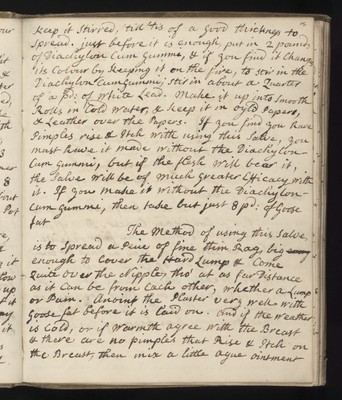 keep it Stirred, till 'tis of a Good thickness to
Spread. just before it is enough, put in 2 pound
of Diachylon Cum Gummi, & if you find it Change
its Colour by keeping it on the fire, to Stir in the
Diachylon Cum Gummi; Stir in about a Quarter
of a Pd: of White Lead. Make it up into Smooth
Rolls in Cold Water, & keep it in oyld Papers,
& Leather over the Papers. If you find you have
Pimples rise & Itch with using this Salve, you
must have it made without the Diachylon
Cum Gummi, but if the flesh will bear it,
the Salve will be of much greater Efficacy with
it. If you make it without the Diachylon
Cum Gummi, then take but just 8 pd: of Goose
fat
The Method of using this Salve,
is to Spread a Peice of fine thin Rag, big
enough to Cover the Hard Lump & Come
Quite over the Nipple, tho' at as far Distance
as it Can be from Each other, whether a Lump
or Pain. Anoint the Plaster very well with
Goose fat before it is laid on. And if the Weather
is Cold, or if Warmth agree with the Breast
& there are no pimples that Rise & Itch on
the Breast, then mix a little ague ointment